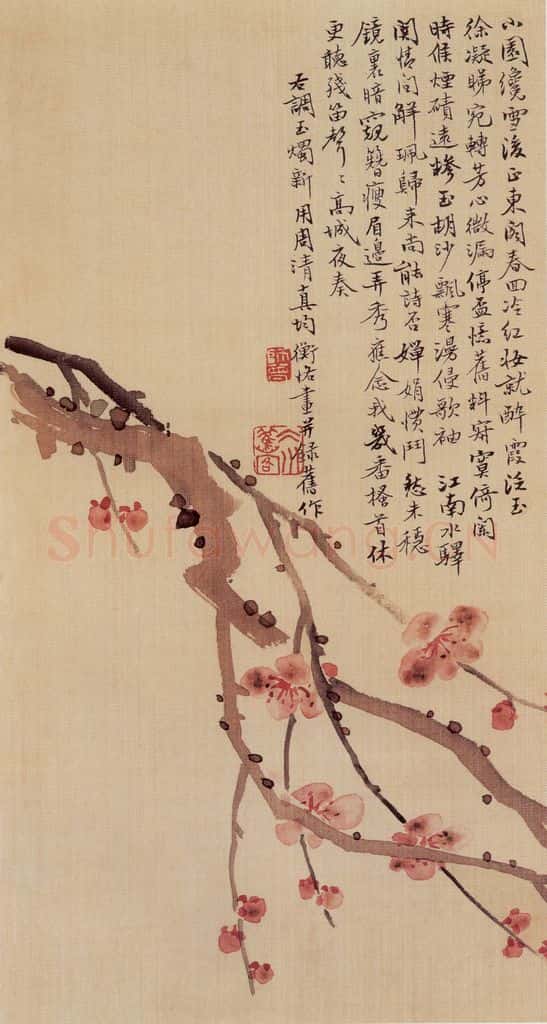 小園纔雪後正東閣春回冷紅妝就醉霞泛玉
徐凝睇宛轉芳心微漏停盃慿舊料寂寞倚闌
時候煙磧遠糝玉胡沙飄寒漫侵歌袖 江南水驛
關情問解珮歸来尚能詩否嬋娟慣鬥愁未穩
鏡裏暗窺簪瘦眉邊弄秀應念我幾番搔首休
更聽殘笛聲〻高城夜奏
右調玉燭新用周清真均衡怡畫并錄舊作
Shufawang.CN